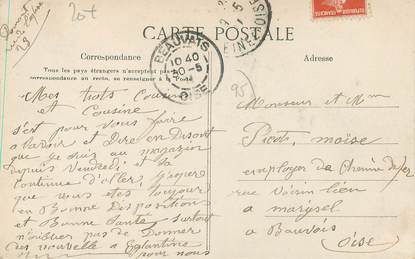 20+
CARTE POSTALE
Correspondance
Adresse
Tous les pays étrangers n'acceptent pas
correspondance au recto, se renseigner à la Poste
BEAUVAIS
10 40
30 -5
OISE
95
Mes trois Cousins
et Cousine
s'est pour vous faire
a Savoir et Dire en Disant
que je suis au magazin
depuis Vendredi et sa
Continue d'aller j'espère
que vous ètes toujour
en Bonne Dispositions
et Bonne Santé surtout
n'oublier pas de Donner
des nouvelle a Eglantine
pour nous
Monsieur et Mme
Piot, moise
employer du Chemin de fer
rue Voisin lieu
a marissel
a Beauvois
Oise